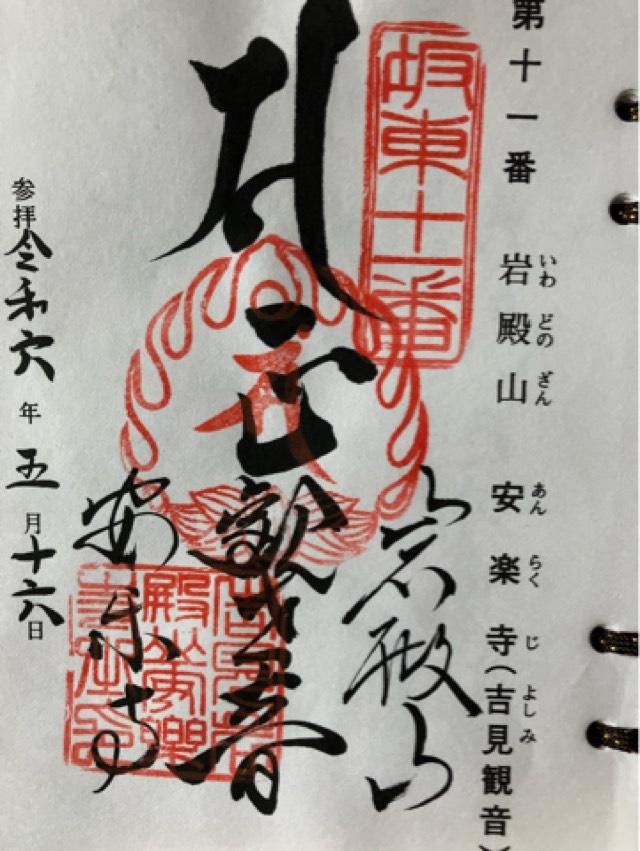 第十一番 岩殿山 安楽寺(吉見観音)
いわ どの ざん あん らく じ よしみ
坂東十一番
岩殿山
正観音
安楽寺
参拝令和六年五月十六日